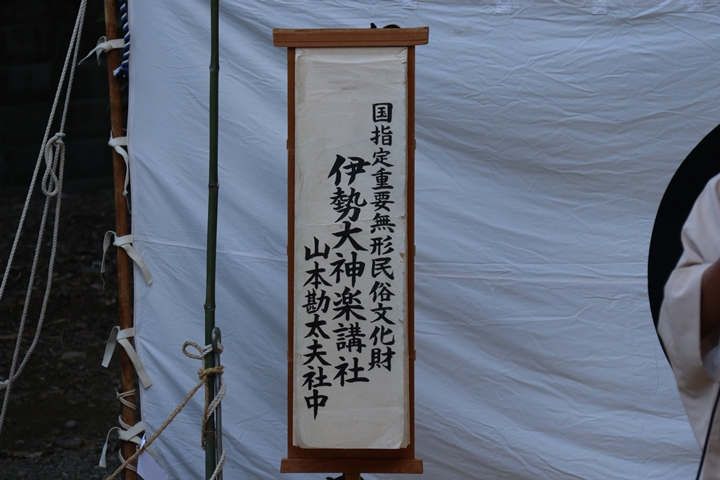 国指定重要無形民俗文化財
伊勢大神楽講社
山本勘太夫社中